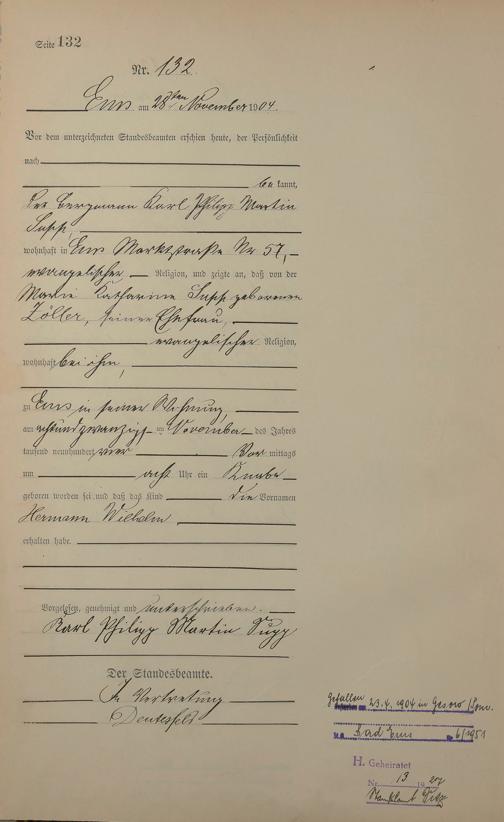 Seite 132
Nr. 132.
Ems am 28ten November 1904.
Vor dem unterzeichneten Standesbeamten erschien heute, der Persönlichkeit
nach
be kannt,
der Bergmann Karl Philipp Martin
Supp,
wohnhaft in Ems Marktstraße Nr 57,
evangelischer Religion, und zeigte an, daß von der
Marie Katharine Supp geborenen
Zöller, seiner Ehefrau,
evangelischer Religion,
wohnhaft bei ihm,
zu Ems in seiner Wohnung,
am achtundzwanzigsten November des Jahres
tausend neunhundert vier Vor mittags
um acht Uhr ein Knabe
geboren worden sei und daß das Kind die Vornamen
Hermann Wilhelm
erhalten habe.
Vorgelesen, genehmigt und unterschrieben.
Karl Philipp Martin Supp
Der Standesbeamte.
In Vertretung
Gefallen 23.4. in
Bad Ems 6/1951
H. Geheiratet
Nr. 13 19
Standesamt